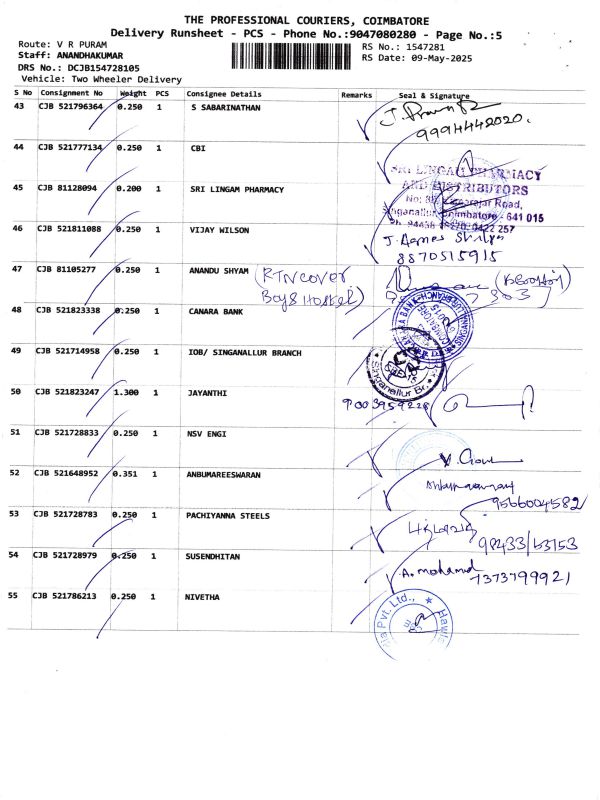 THE PROFESSIONAL COURIERS, COIMBATORE
Delivery Runsheet - PCS - Phone No.:9047080280 - Page No.:5
Route: V R PURAM
RS No.: 1547281
Staff: ANANDHAKUMAR
RS Date: 09-May-2025
DRS No.: DCJB154728105
Vehicle: Two Wheeler Delivery
S No Consignment No Weight PCS Consignee Details Remarks Seal & Signature
43 CJB 521796364 0.250 1 S SABARINATHAN
9994442020.
44 CJB 521777134 0.250 1 CBI
SRI LINGAM PHARMACY
AND DISTRIBUTORS
45 CJB 81128094 0.200 1 SRI LINGAM PHARMACY
Singanallur, Coimbatore - 641 015
46 CJB 521811088 0.250 1 VIJAY WILSON
J. Agnes
8870515915
47 CJB 81105277 0.250 1 ANANDU SHYAM (RTNCOVER
Boys Hostel)
48 CJB 521823338 0.250 1 CANARA BANK
49 CJB 521714958 0.250 1 IOB/ SINGANALLUR BRANCH
Singanallur Br.
50 CJB 521823247 1.300 1 JAYANTHI
9003959228
51 CJB 521728833 0.250 1 NSV ENGI
52 CJB 521648952 0.351 1 ANBUMAREESWARAN
9566004582
53 CJB 521728783 0.250 1 PACHIYANNA STEELS
98433/63153
54 CJB 521728979 0.250 1 SUSENDHITAN
A. mohamed
7373799921
55 CJB 521786213 0.250 1 NIVETHA
Pvt. Ltd.,